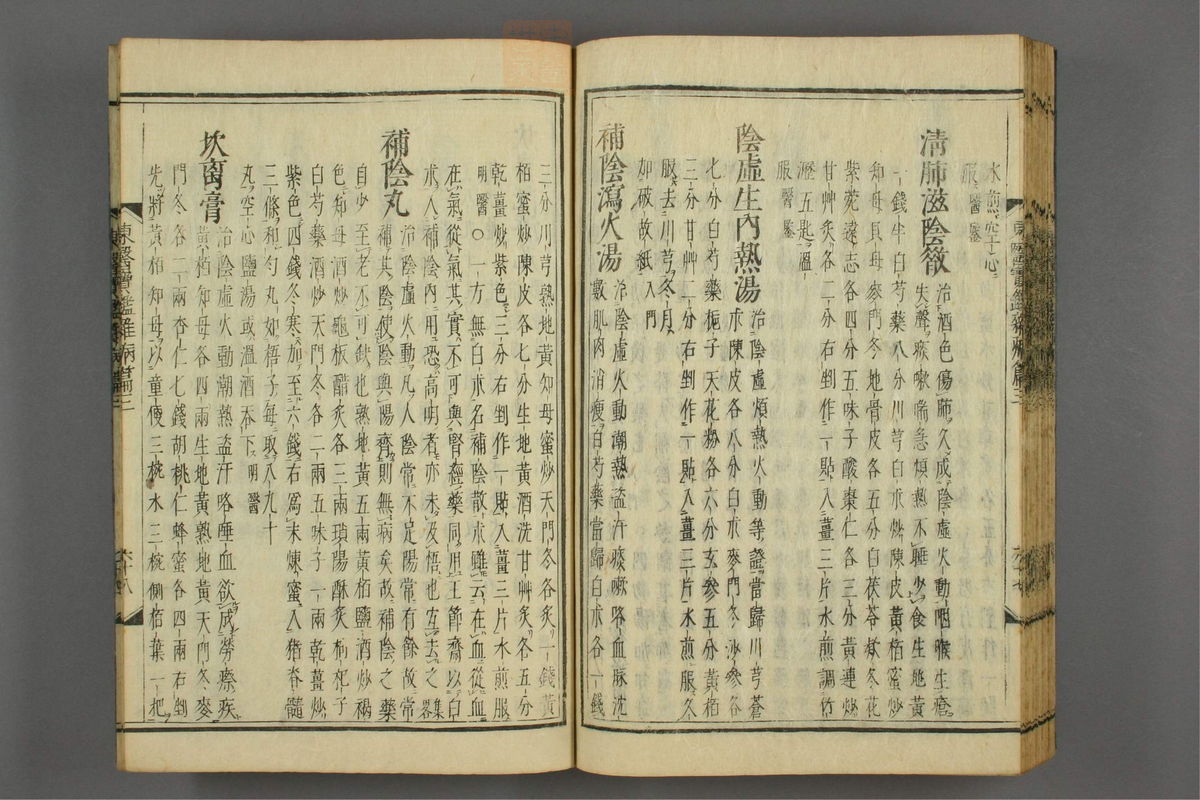 水煎空心
服醫鑒
清肺滋陰散 治酒色傷肺久成陰虛火動咽喉生瘡
失聲痰嗽喘急煩熱不睡少食生地黃
一錢半白芍藥八分川芎白朮炒陳皮黃栢蜜炒
知母貝母麥門冬地骨皮各五分白茯苓款冬花
紫菀遠志各四分五味子酸棗仁各三分黃連炒
甘艸炙各二分右剉作一貼入薑三片水煎調竹
瀝五匙溫
服醫鑒
陰虛生內熱湯 治陰虛煩熱火動等證當歸川芎蒼
朮陳皮各八分白朮麥門冬沙參各
七分白芍藥梔子天花粉各六分玄參五分黃栢
三分甘艸二分右剉作一貼入薑三片水煎服冬
服去川芎冬月
如破故紙入門
補陰瀉火湯 治陰虛火動潮熱盜汗痰嗽咯血脉沈
數肌肉消瘦白芍藥當歸白朮各一錢
三分川芎熟地黃知母蜜炒天門冬各炙一錢黃
栢蜜炒陳皮各七分生地黃酒洗甘艸炙各五分
乾薑炒紫色三分右剉作一貼入薑三片水煎服
明醫○一方無白朮名補陰散朮雖云在血從血
在氣從氣其實不可與腎經藥同用王節齋以白
朮入補陰內用恐高明者亦未及悟也宜去之集畧
補陰丸 治陰虛火動凡人陰常不足陽常有餘故常
補其陰使陰與陽齊則無病矣故補陰之藥
自少至老不可缺也熟地黃五兩黃栢鹽酒炒褐
色知母酒炒龜板醋炙各三兩瑣陽酥炙枸杞子
白芍藥酒炒天門冬各二兩五味子一兩乾薑炒
紫色四錢冬寒加至六錢右爲末煉蜜入猪脊髓
三條和勻丸如梧子每取八九十
丸空心鹽湯或溫酒吞下明醫
坎离膏 治陰虛火動潮熱盜汗咯唾血欲成勞瘵疾
黃栢知母各四兩生地黃熟地黃天門冬麥
門冬各二兩杏仁七錢胡桃仁蜂蜜各四兩右剉
先將黃栢知母以童便三椀水三椀側栢葉一把
東醫寶鑑雜病篇三
六十八